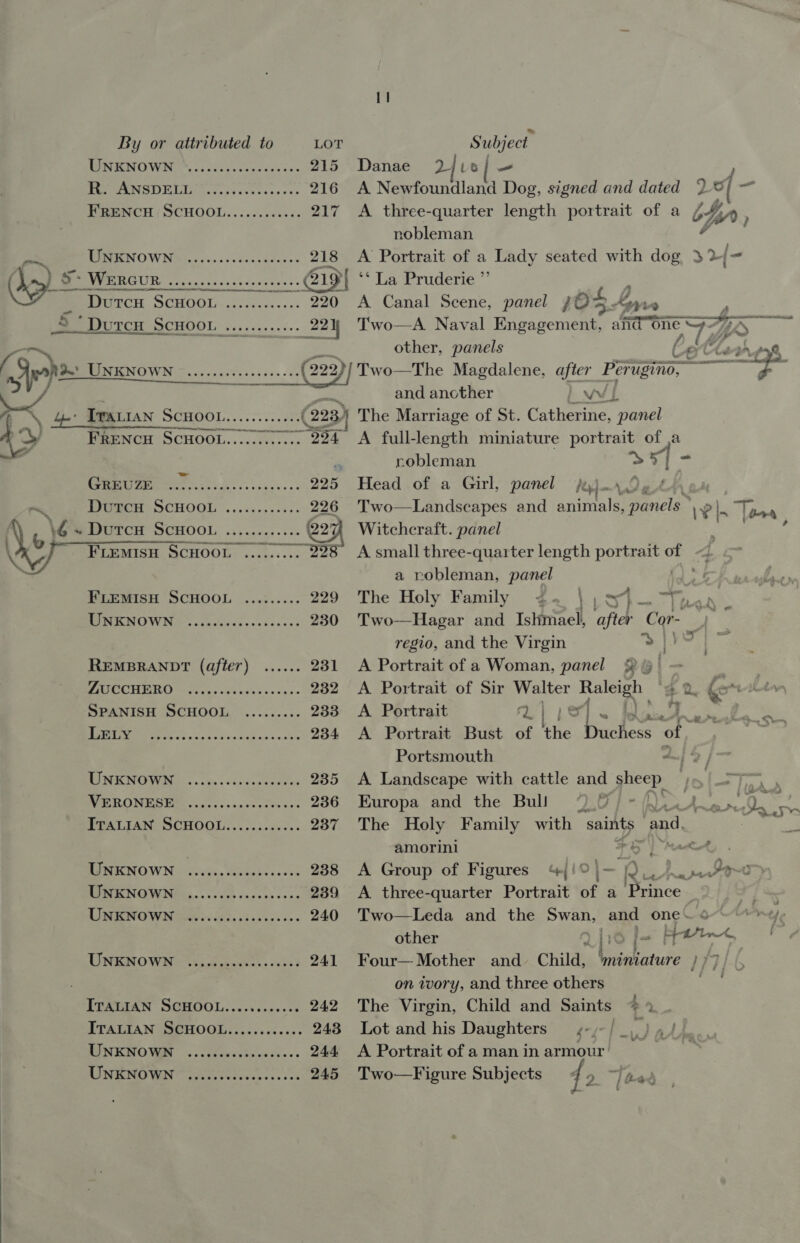 11
By or attributed to LOT Subject
UNKNOWN .................. 215 Danae 2/10/-
R. ANSDELL ............... 216 A Newfoundland Dog, signed and dated
FRENCH SCHOOL............ 217 A three-quarter length portrait of a
nobleman
UNKNOWN .................. 218 A Portrait of a Lady seated with dog
WERGUR ..................... 219 “ La Pruderie ”
DUTCH SCHOOL ............ 220 A Canal Scene, panel
DUTCH SCHOOL ............ 221 Two—A Naval Engagement, and one
other, panels
UNKNOWN .................. 222 Two—The Magdalene, after Perugino,
and another
ITALIAN SCHOOL............ 223 The Marriage of St. Catherine, panel
FRENCH SCHOOL............ 224 A full-length miniature portrait of a
nobleman
GREUZE ..................... 225 Head of a Girl, panel
DUTCH SCHOOL ............ 226 Two—Landscapes and animals, panels
DUTCH SCHOOL ............ 227 Witchcraft. panel
FLEMISH SCHOOL ......... 228 A small three-quarter length portrait of
a nobleman, panel
FLEMISH SCHOOL ......... 229 The Holy Family
UNKNOWN .................. 230 Two—Hagar and Ishmael, after Cor-
regio, and the Virgin
REMBRANDT (after) ...... 231 A Portrait of a Woman, panel
ZUCCHERO .................. 232 A Portrait of Sir Walter Raleigh
SPANISH SCHOOL ......... 233 A Portrait
LELY ........................ 234 A Portrait Bust of the Duchess of
Portsmouth
UNKNOWN .................. 235 A Landscape with cattle and sheep
VERONESE .................. 236 Europa and the Bull
ITALIAN SCHOOL............ 237 The Holy Family with saints and
amorini
UNKNOWN .................. 238 A Group of Figures
UNKNOWN .................. 239 A three-quarter Portrait of a Prince
UNKNOWN .................. 240 Two—Leda and the Swan, and one
other
UNKNOWN .................. 241 Four—Mother and Child, miniature
on ivory, and three others
ITALIAN SCHOOL............ 242 The Virgin, Child and Saints
ITALIAN SCHOOL............ 243 Lot and his Daughters
UNKNOWN .................. 244 A Portrait of a man in armour
UNKNOWN .................. 245 Two—Figure Subjects